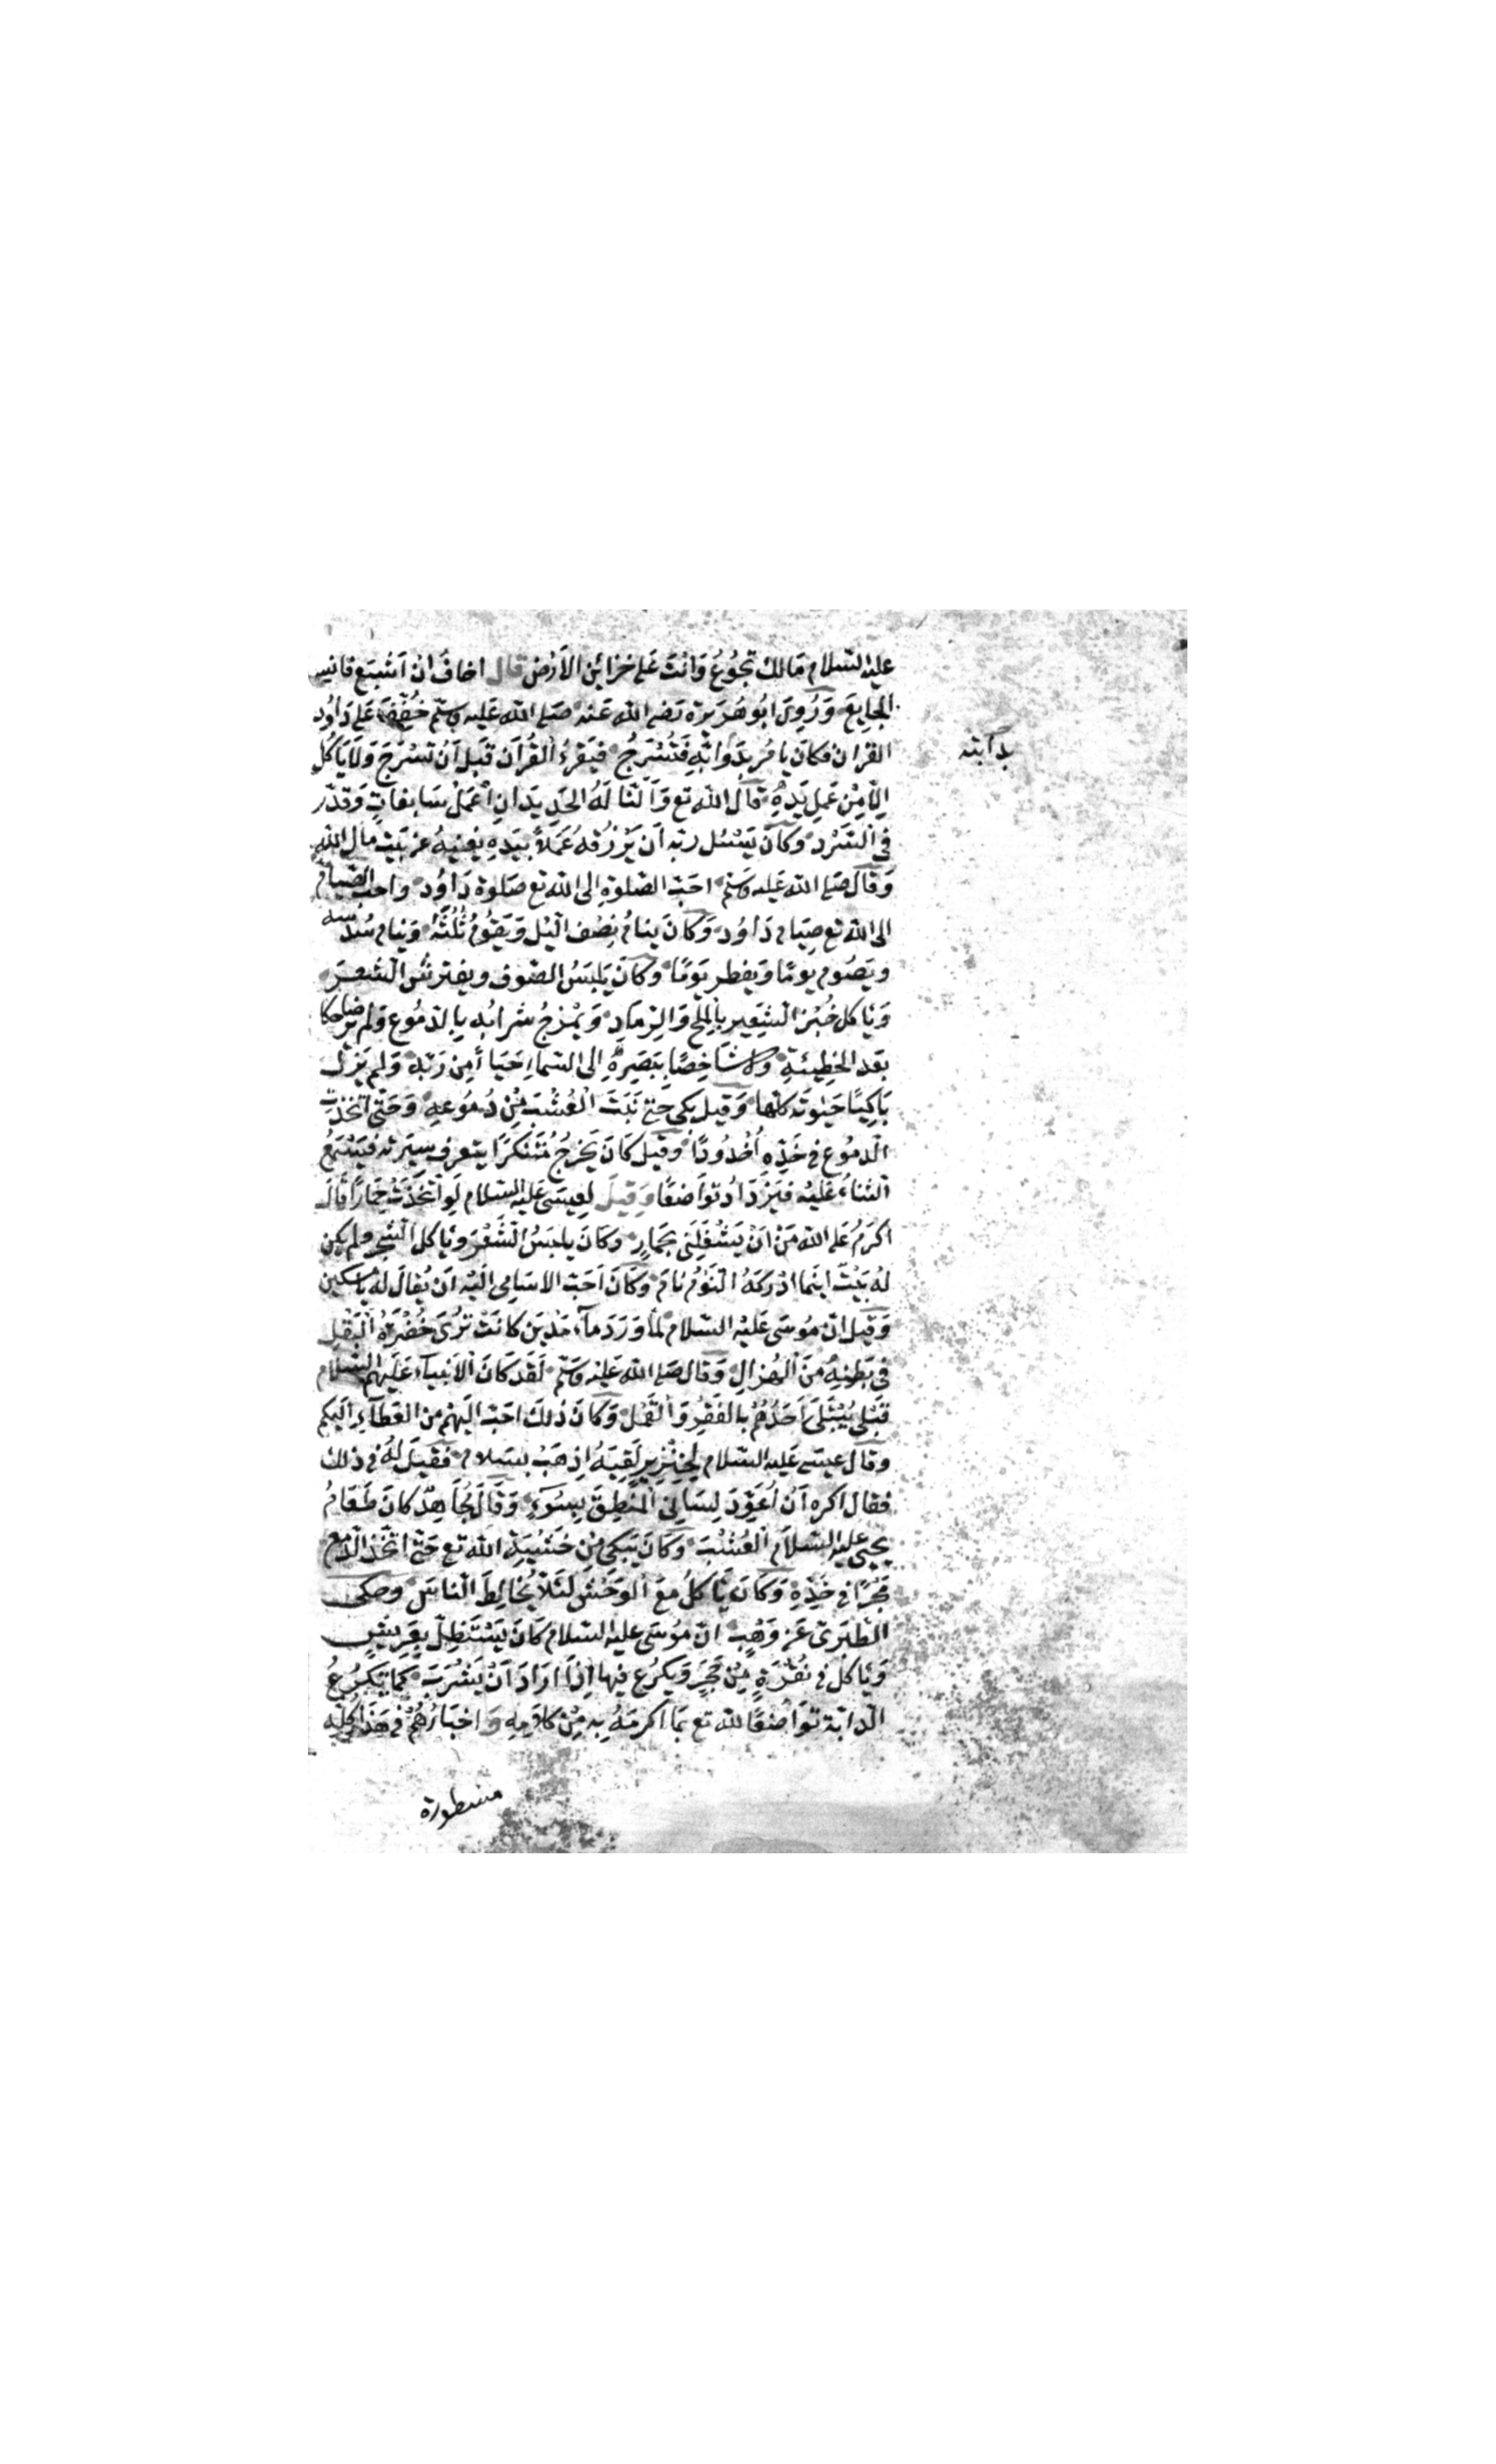 عليه السلام مَالكَ تجُوُعُ وَانْتَ عَلى خزائِن الاَرْض قال اخافُ انْ اَشْبَعَ فانسى
الجايِعَ وَرُوِىَ ابُو هُرَيرَة رَضى الله عَنه صَلى الله عَليه وسَلم خُفِّفَ عَلى دَاوُد
القران فكانَ يا مُر بدَوَابّهِ فَتُسْرَجُ فيَقرءُ القُرآنَ قبْلَ اَنْ تسْرَجَ وَلَا يَا كُلُ
بدابته
اِلّا مِنْ عَمِل يَدِهِ قالَ الله تع وَاَلَنَّا لَهُ الحَدِيدَ اَنِ اعْمَلْ سَابِغاتٍ وَقدّر
فى السَّرْد وَكانَ يَسْئل ربّه اَن يَرْزُقهُ عَمَلاً بيَدِهِ يغنيهُ عن بَيْت مال الله
وَقالَ صَلى الله عَليه وسَلم احَبّ الصَّلوةِ الى الله تع صَلوة دَاوُد واحبّ الصّيام
الى الله تع صِيَام دَاوُد وَكانَ ينامُ نِصْف الّيْل وَيَقوُمُ ثُلُثَهُ وَينام سُدسه
ويَصُوم يومًا وَيفطر يَوْمًا وكانَ يَلبَسُ الصّوف ويفترشُ الشعر
وَيَا كل خُبْز الشّعِير بالملح وَالرّمادِ وَيمْزجُ شرابُه بالدّمُوع وَلم يُر ضاحكا
بَعد الخطِيئةِ وَلا شاخِصًا ببَصَرِهِ الى السّماءِ حَيَاءً مِن رَبّه وَلم يَزل
بَاكِيًا حَيٰوتَه كلّها وَقيل بكى حَتى نَبَتَ العُشْبُ مِنْ دُمُوعِه وَحَتى اتخذت
الدمُوع فى خَدّه اُخْدُودًا وَقيل كَانَ يَخرجُ مُتَنكرًا يتعرف سِيرَته فيَسْمَعُ
الثناءَ عَليْه فيَزْدَادُ تواَضعًا وَقيل لعِيسَى عليه السلام لَو اتّخذتَ حِمَارًا قالَ
اكرَمُ عَلى الله مَنْ اَنْ يَشْغلنى بحمَارٍ وَكانَ يلبَسُ الشَّعْرَ وَيَا كل الشجر ولم يكن
لهُ بَيْتٌ اينَما ادْركهُ النَّوْمُ نامَ وَكَانَ اَحَبّ الاسَامى اليْه اَن يُقالَ لهُ يا مسكين
وَقيل انّ مُوسَى عَليْه السّلام لما وَرَدَ ماَء مَدْيَن كانتْ تُرَى خُضْرَة البَقْلِ
فى بَطنِهِ مَنَ الهُزالِ وَقال صَلى الله عَليْه وسَلم لَقَد كانَ الاَنبياَء عَليهم السلام
قَبْلى يُبْتَلَى اَحَدُهُم بالفَقرِ وَالقَمْل وَكانَ ذٰلكَ احَبّ اليَهمْ من العَطاَءِ اليكم
وَقال عيسى عَليه السّلام لخِنْزيرٍ لَقيَهُ اِذهَبْ بسَلام فقيل لهُ فى ذلك
فقال اكره اَنْ اُعَوّدَ لِسَانى المنطِقَ بِسُوَءٍ وَقالَ مُجَاهِدٌ كانَ طَعَامُ
يحيى عليه السّلام العُشْبَ وَكَانَ يَبكى مِنْ خَشْيَةِ الله تع حَتى اتّخذ الدّمع
مَجْرًا فى خَدّهِ وَكَانَ يَا كلُ مَعَ الوَحْش لئَلّا يُخالِط الناسَ وحكى
الطبَرى عَن وَهْبٍ انّ مُوسَى عليه السّلام كانَ يَسْتَظلّ بِعَرِيشٍ
وَيَا كل فى نُقرَةٍ مِنْ حَجَرٍ وَيكرَع فيها اِذا ارَادَ اَنْ يَشْرَبَ كمَا يَكرَعُ
الدابّة تواَضعًا لله تع بمَا اكرمَهُ بِه مِنْ كلامِه وَاخبَارُهُمْ فى هَذا كلّه
مسطورة